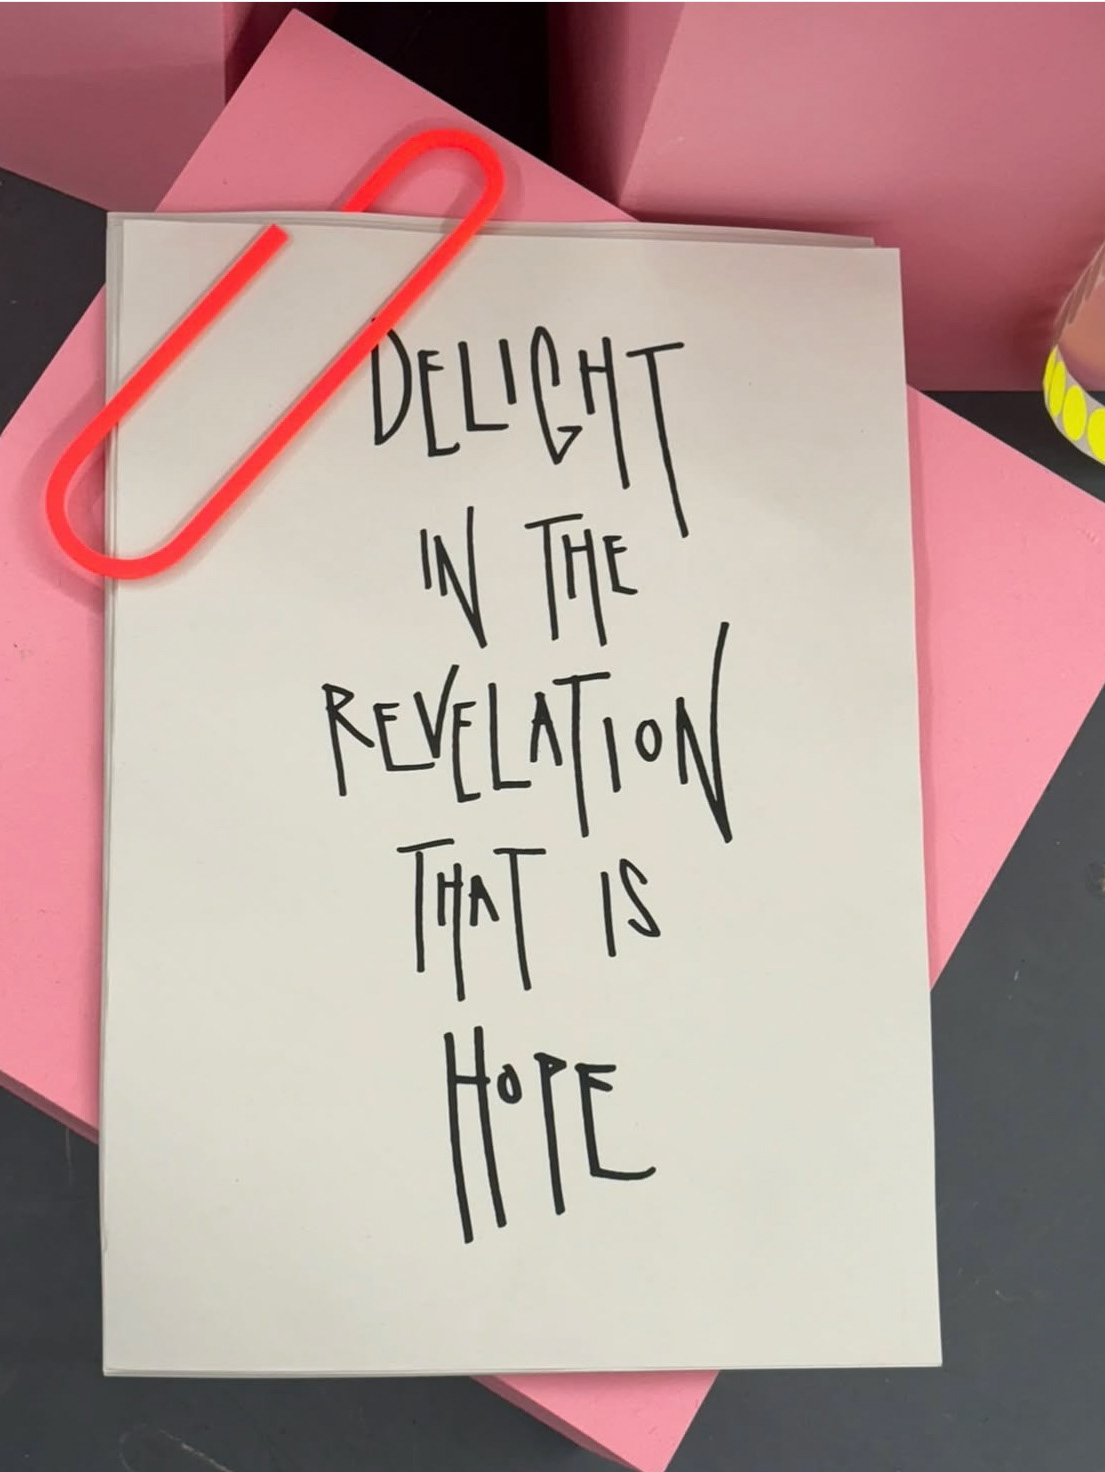 DELIGHT
IN THE
REVELATION
THAT IS
HOPE